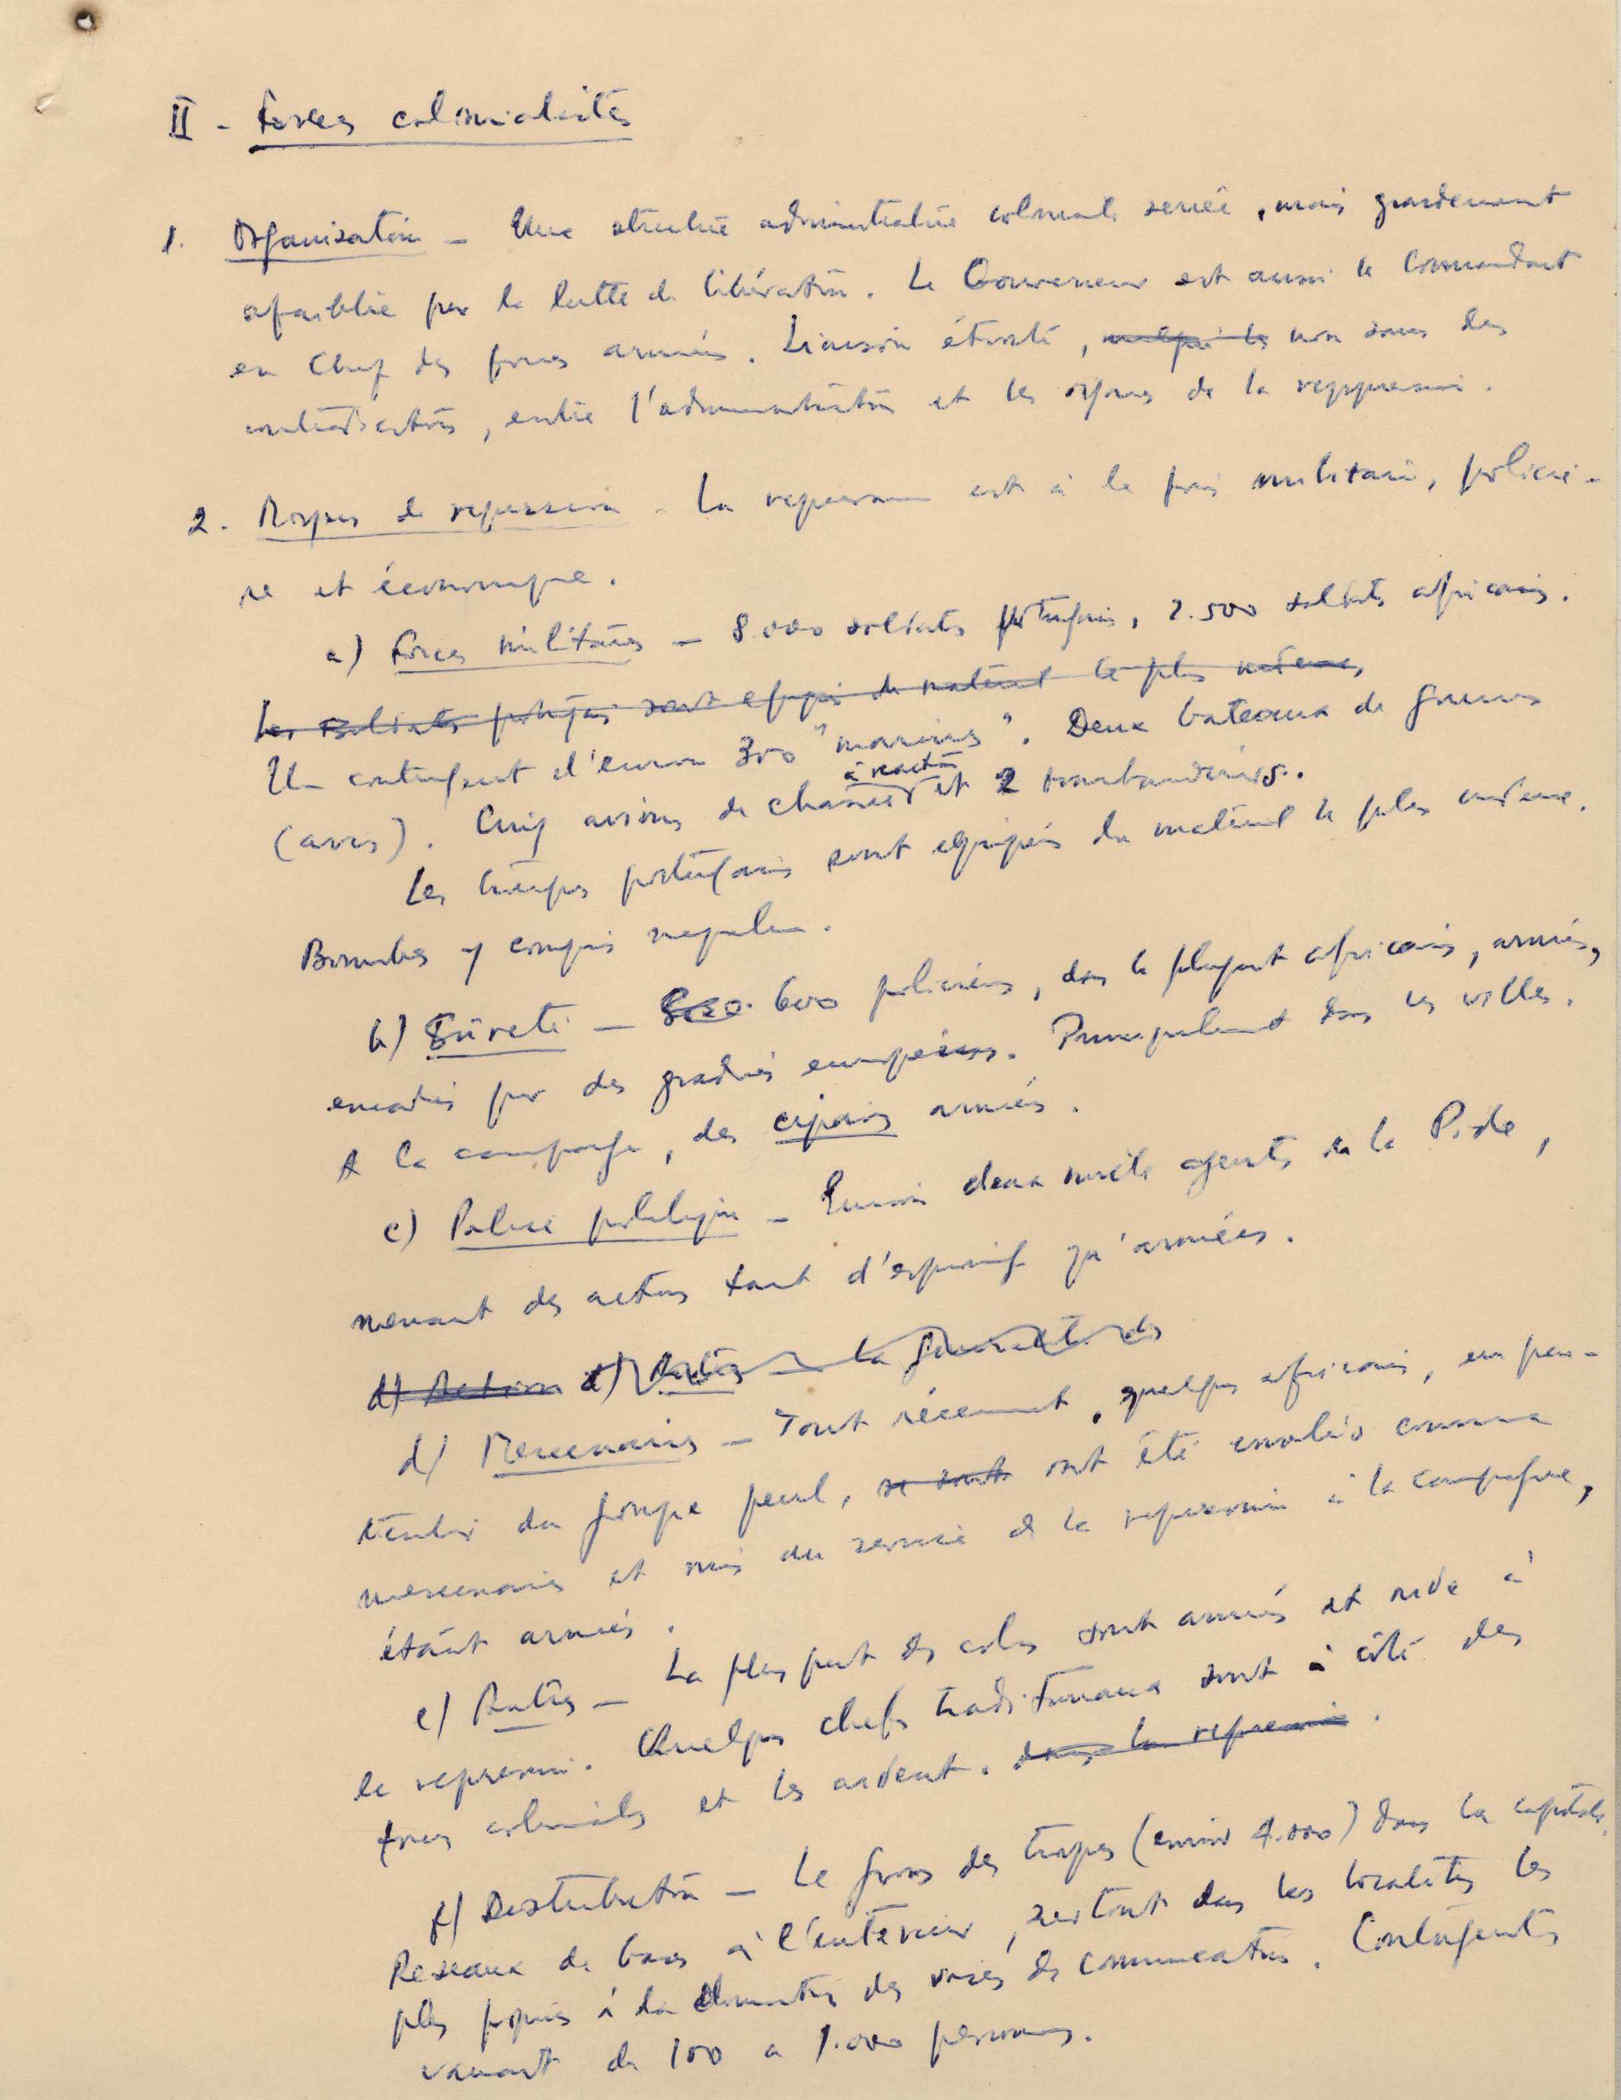 II - Forces colonialistes
1. Organisation - Une structure administrative coloniale serrée, mais grandement
afaiblie par la lutte de libération. Le Gouverneur est aussi le Commandant
en Chef des forces armées. Liaison étroite, malgré les non sans des
contradictions, entre l'administration et les organes de la reppression.
2. de repression - La repression est à la fois militaire, policiè-
re et économique.
a) Forces militaires - 8.000 soldats portugais, 2.500 soldats africains.
Les soldats portugais sont equipés du matériel le plus moderne,
Un contingent d'environ 300 "marines". Deux bateaux de guerre
(avisos). Cinq avions de chasse à reaction et 2 bombardiers.
Les troupes portugaises sont equipés du matériel le plus moderne.
Bombes y compris napalm.
b) Sûreté - 600 policiers, dans la plupart africains, armés,
encadrés par des gradés européens. Principalement dans les villes.
A la campagne, des cipaios armés.
c) Police politique - Environ deux mille agents de la Pide,
menant des actions tant d'espionnage qu'armées.
d) Action d) Autres - La
d) Mercenaires - Tout récemment, quelques africains, en par-
ticulier du groupe peul, se sont ont été enrolés comme
mercenaires et mis au service de la repression à la campagne,
étant armés.
e) Autres - La plus part des colons sont armés et aide à
la repression. Quelques chefs traditionnaux sont à côté des
forces coloniales et les aident. dans la repression.
f) Distribution - Le gros des troupes (environ 4.000) dans la capitale.
Reseaux de bases à l'intérieur, surtout dans les localités les
plus propices à la domination des voies de communication. Contingents
variant de 100 a 1.000 personnes.